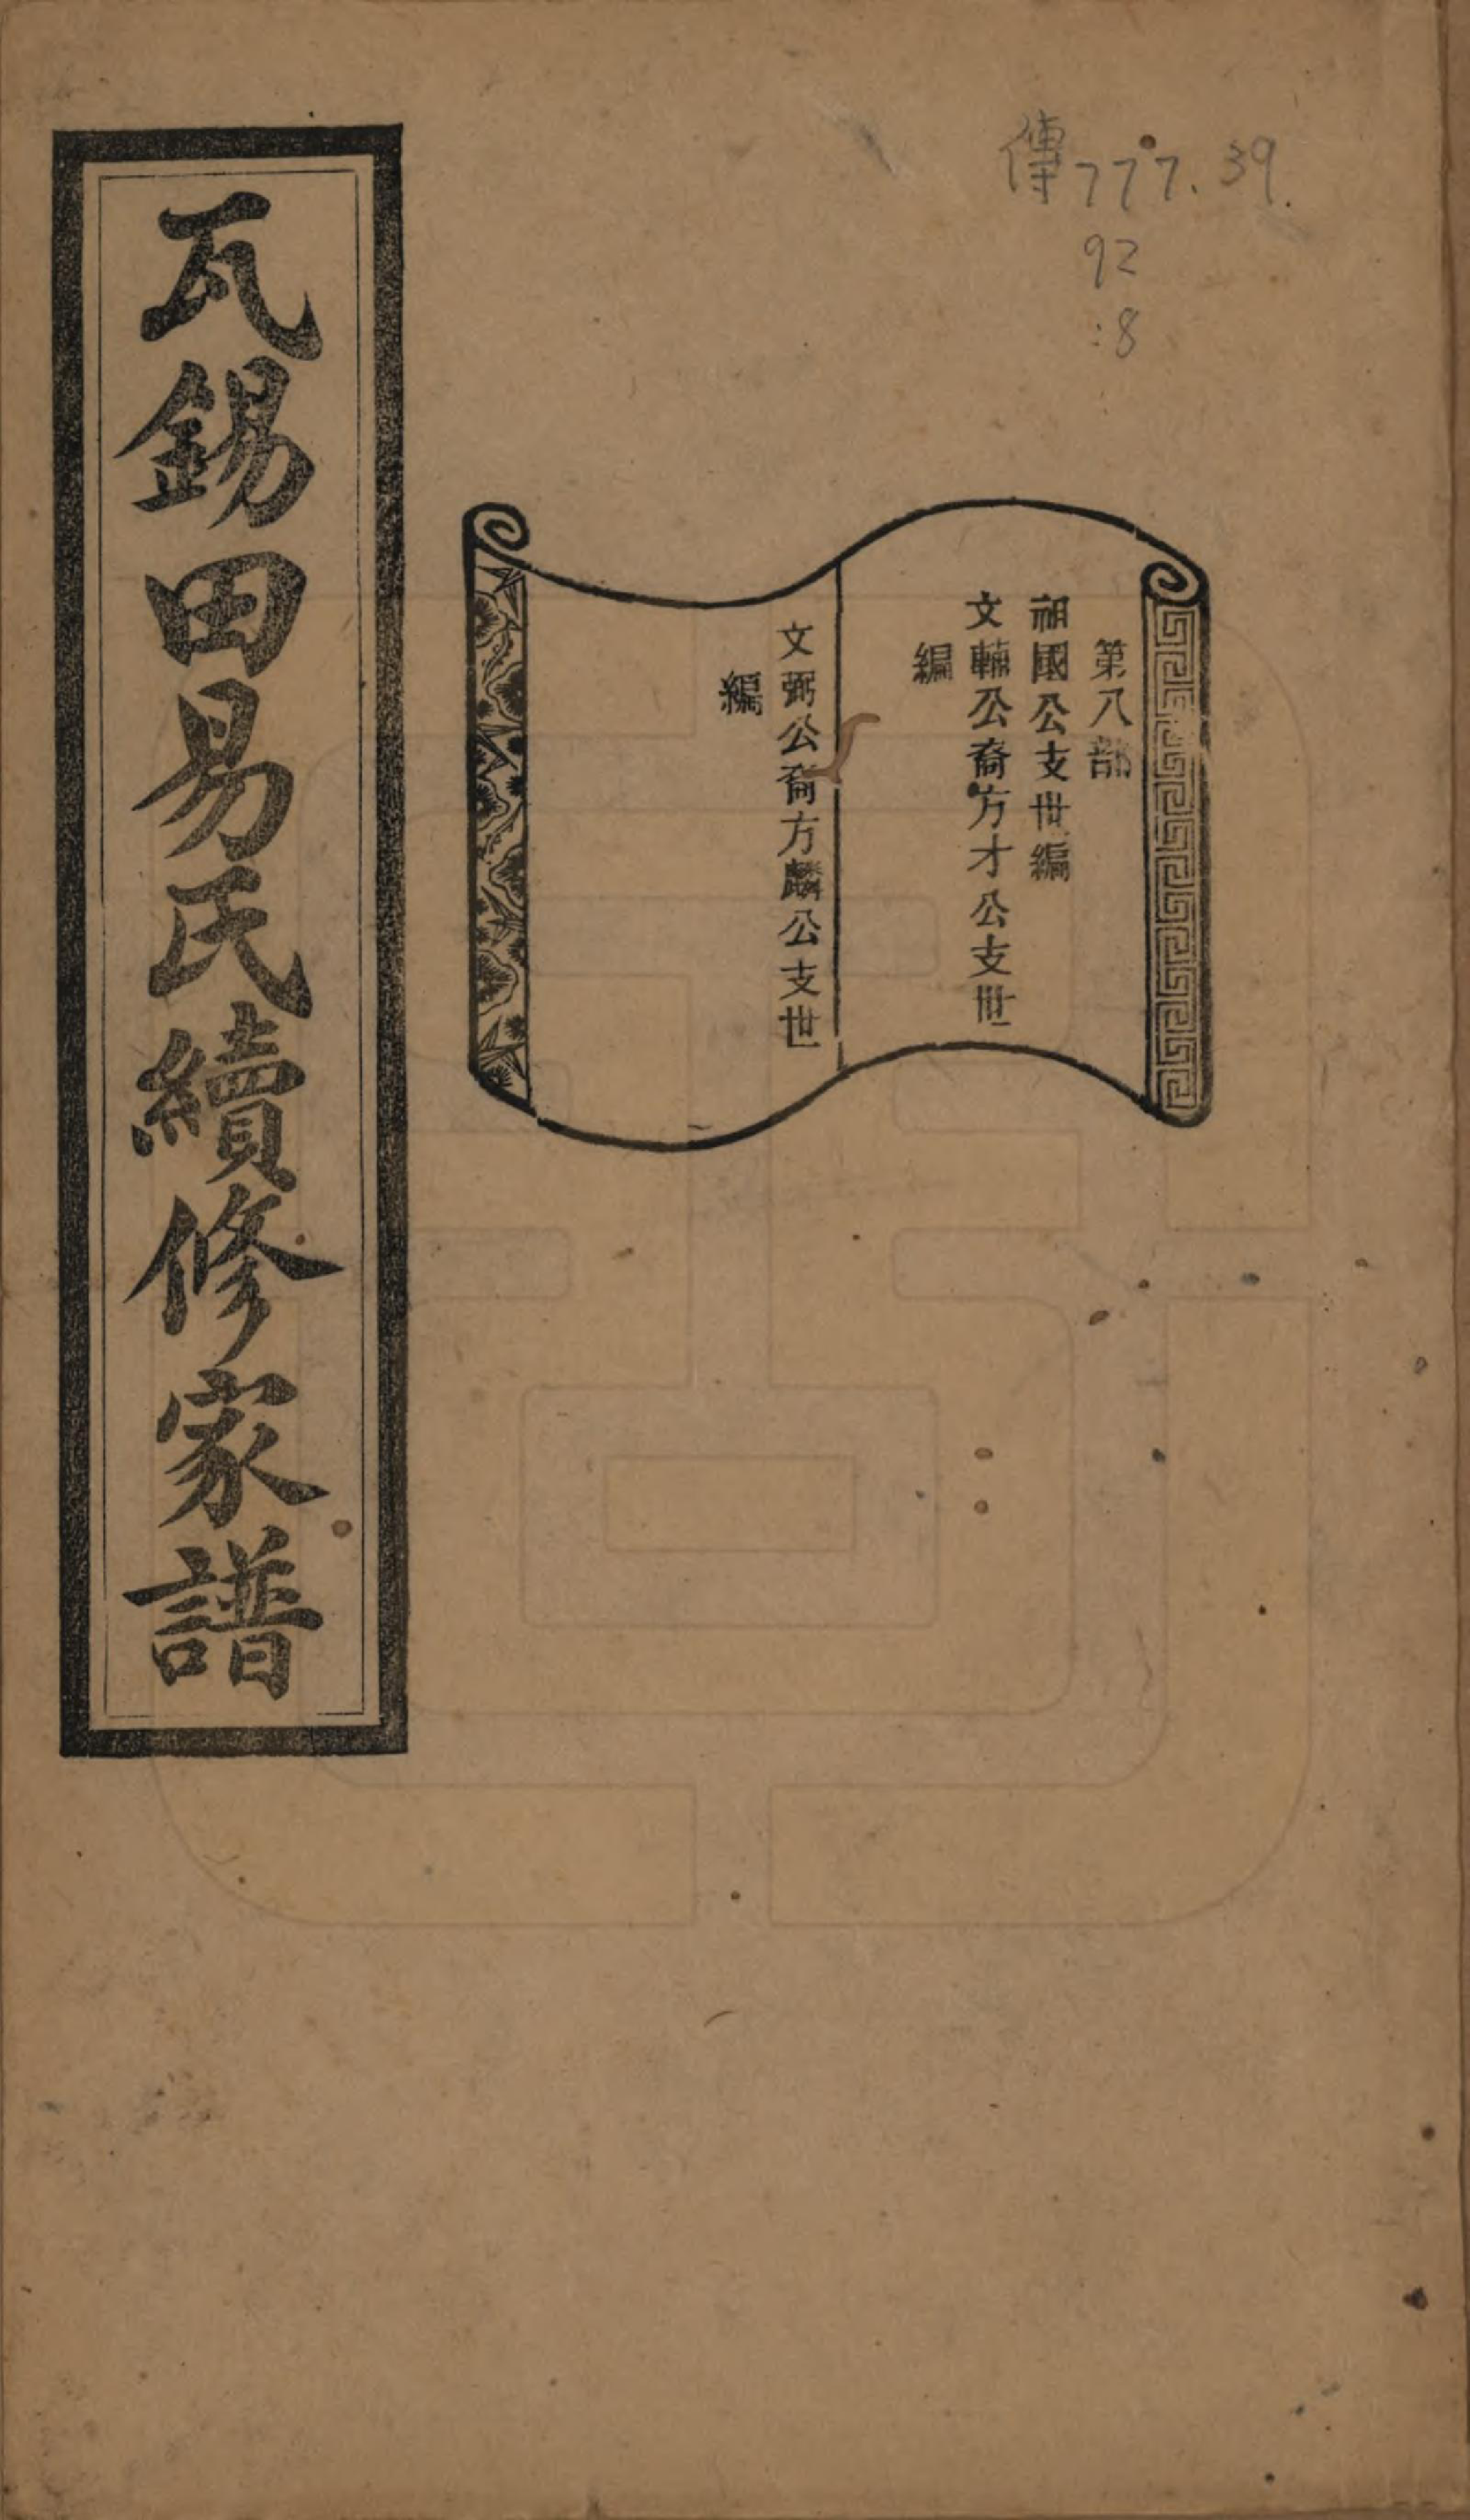 傳777.39
92
:8
第八部
祖國公支世編
文輔公裔方才公支世
編
文弼公裔方麟公支世
編
瓦錫田易氏續修家譜